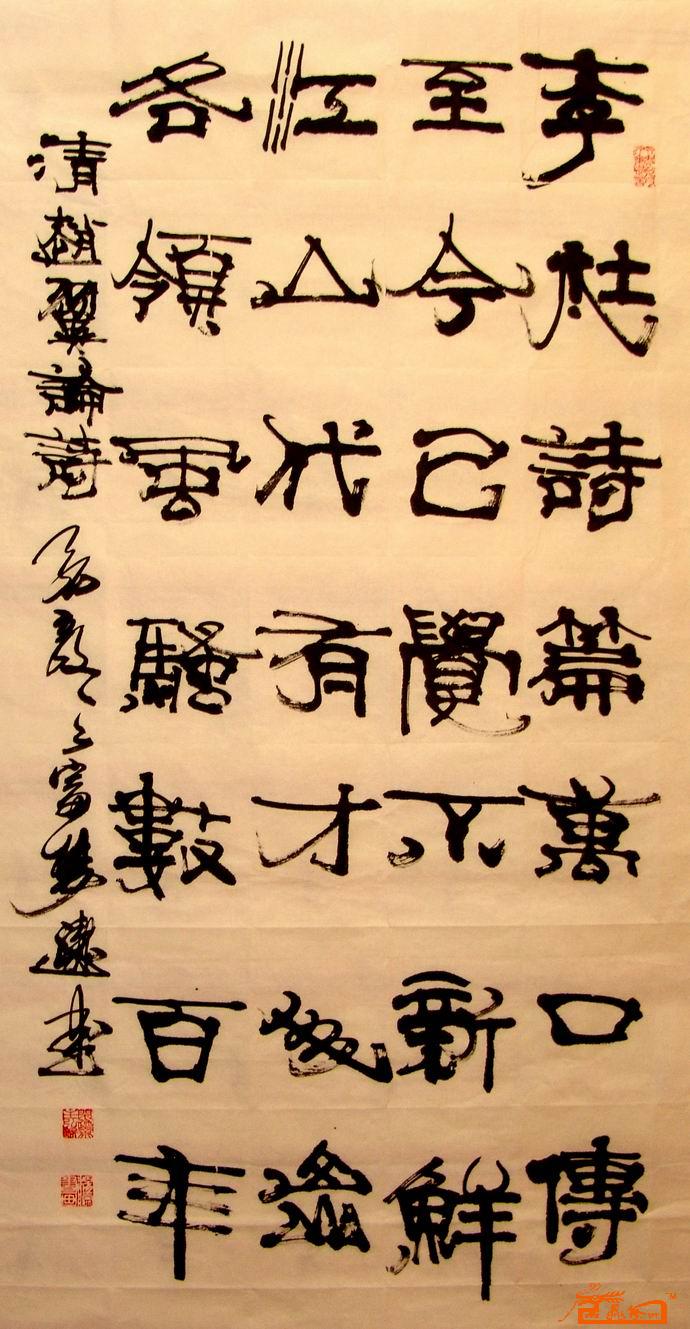 李杜詩篇萬口傳
至今已覺不新鮮
江山代有才
各領風騷數百年
清趙翼論詩